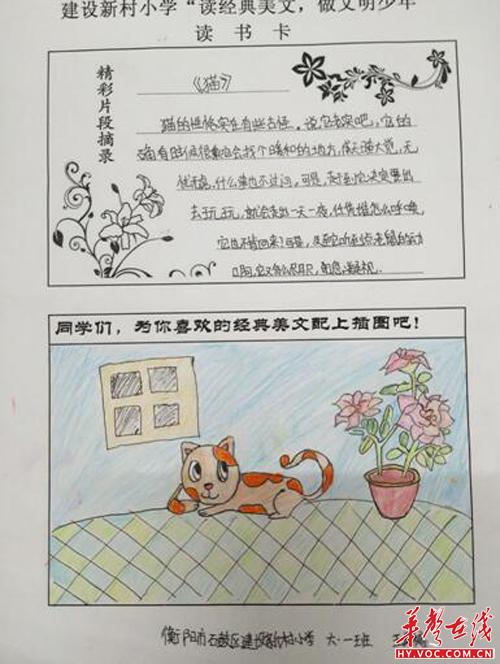 建设新村小学“读经典美文，做文明少年
读书卡
精彩片段摘录
《猫》
猫的性格实在有些古怪。说它老实吧，它的
确有时候很乖。会找个暖和的地方，成天睡大觉，无
忧无虑，什么事也不过问。可是，决定要出
去玩玩，就会走出一天一夜，任凭谁怎么呼唤，
它也不肯回来。可是，听到老鼠的响动
同学们，为你喜欢的经典美文配上插图吧！
衡阳市石鼓区建设新村小学 六·一班
华声在线
HY.VOC.COM.CN